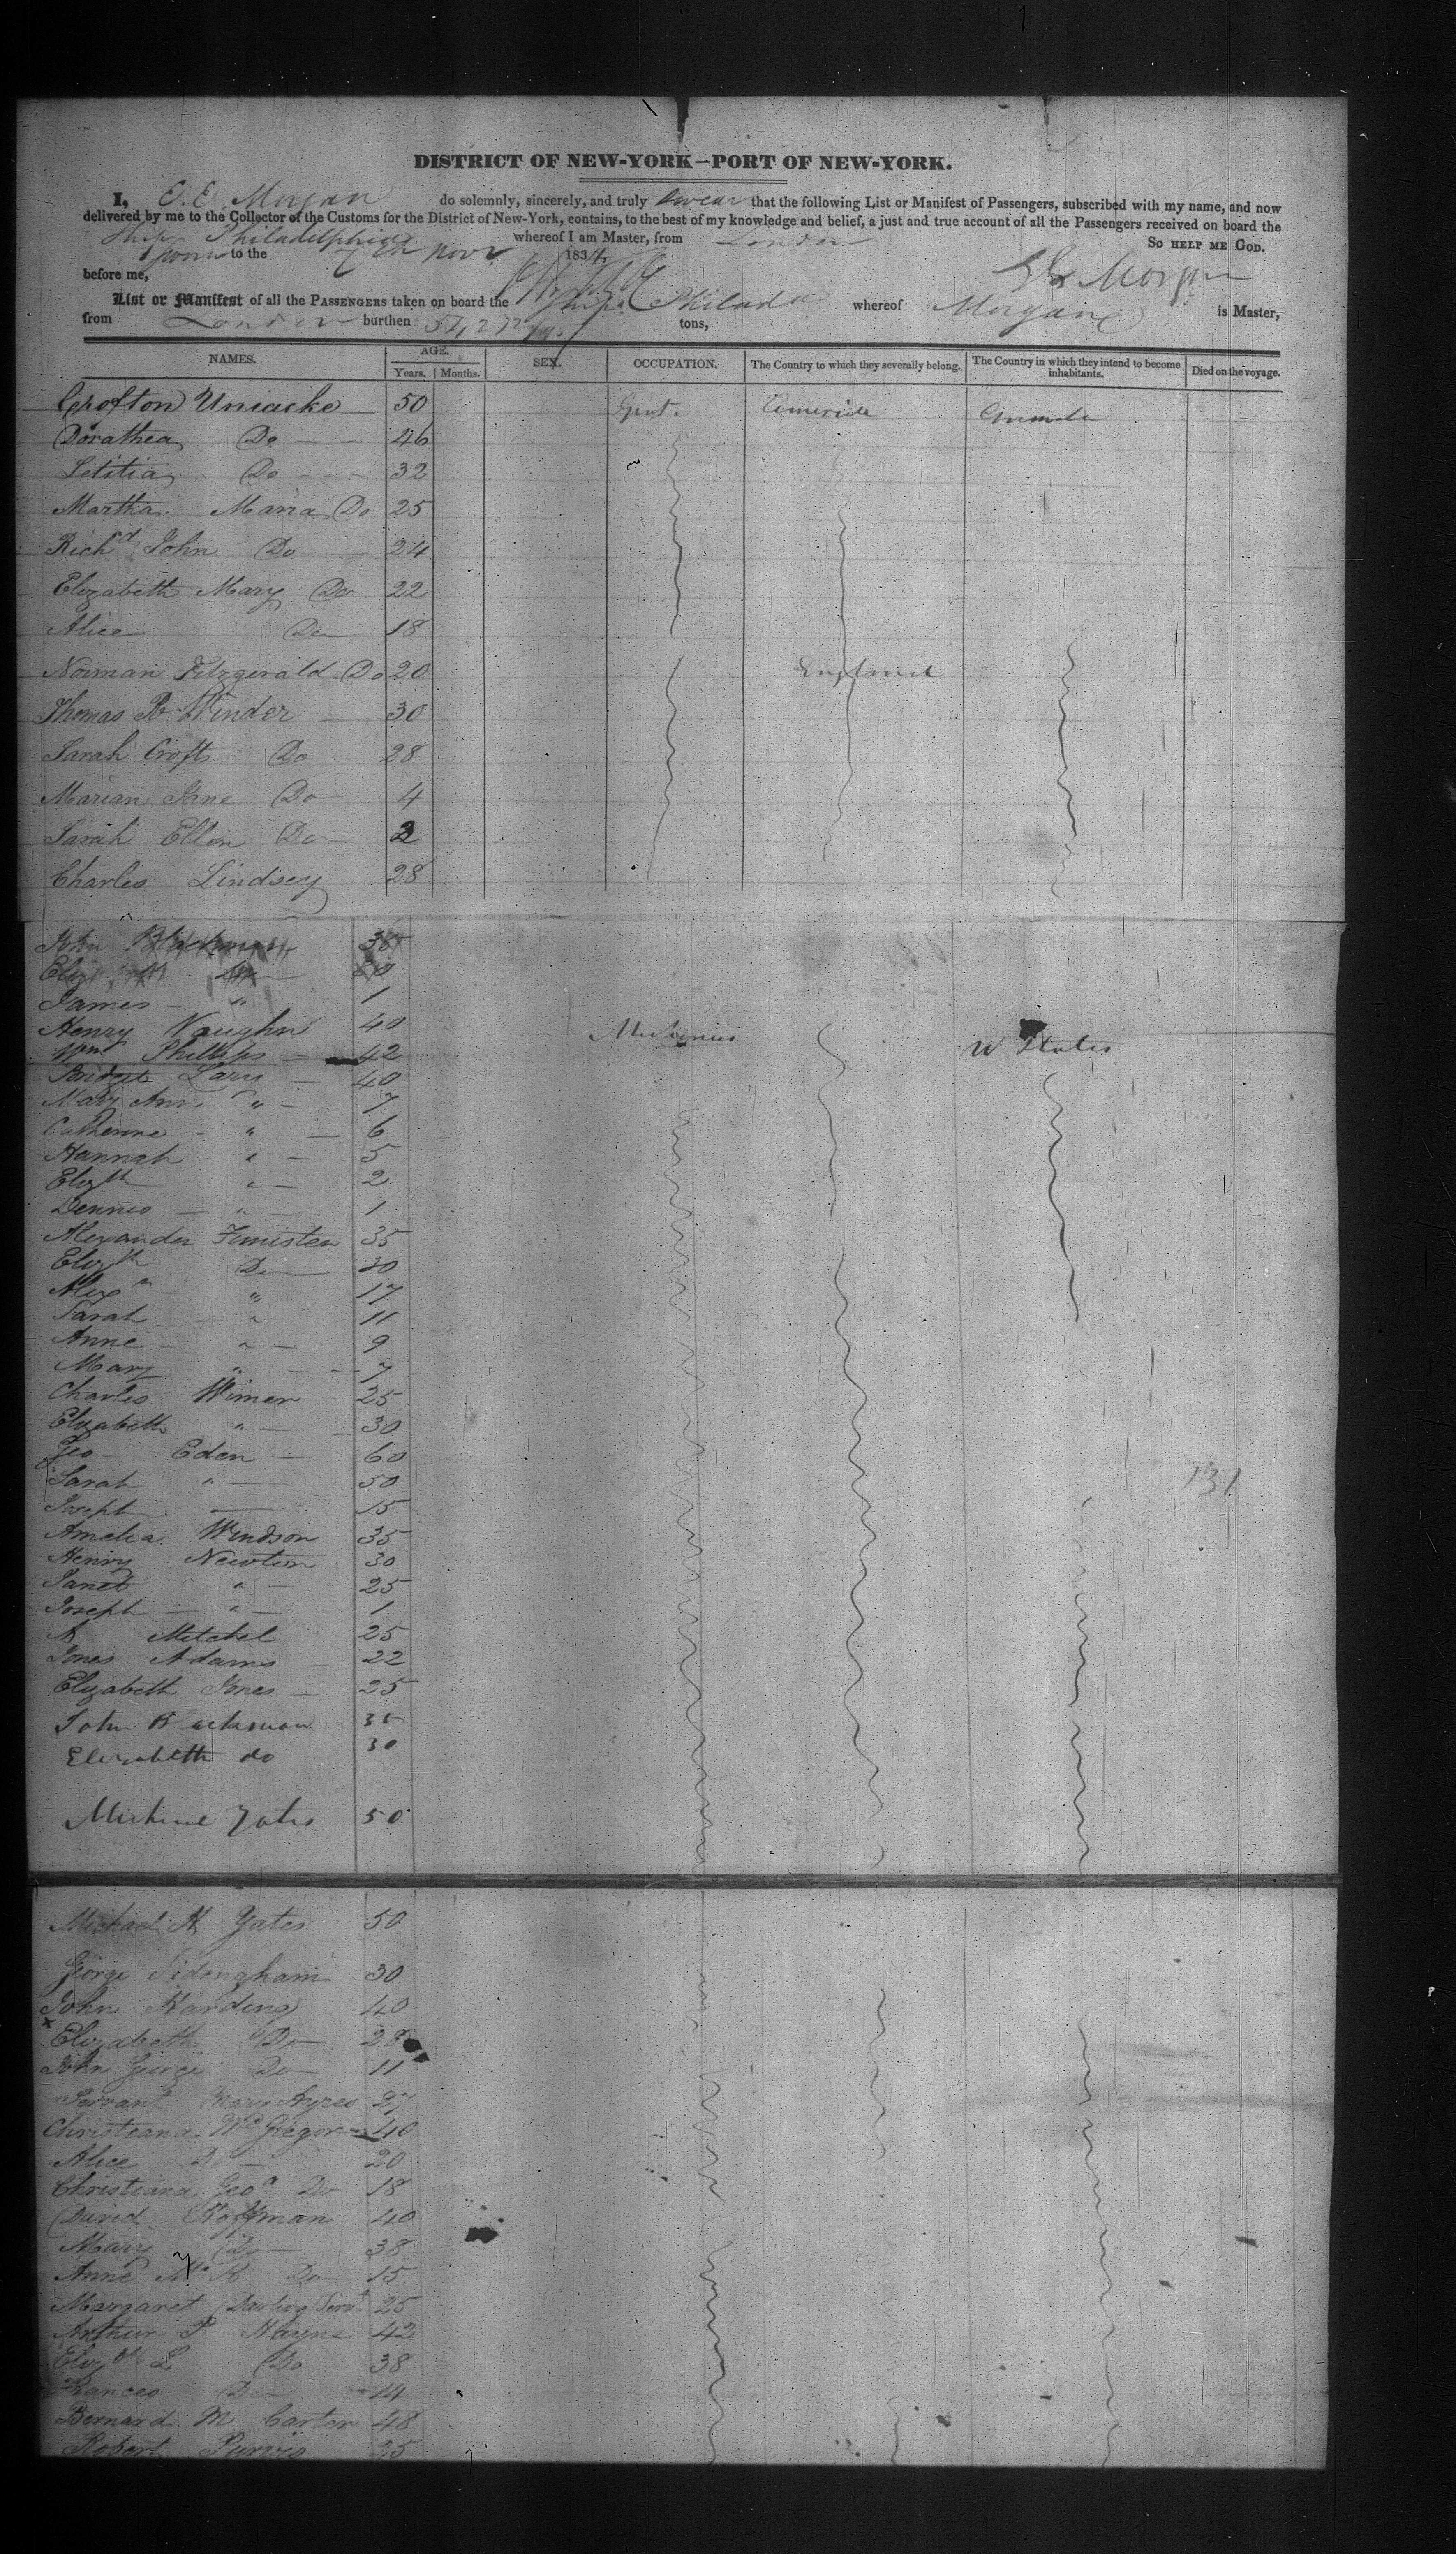 DISTRICT OF NEW-YORK—PORT OF NEW-YORK.
I, E. E. Morgan do solemnly, sincerely, and truly swear that the following List or Manifest of Passengers, subscribed with my name, and now
delivered by me to the Collector of the Customs for the District of New-York, contains, to the best of my knowledge and belief, a just and true account of all the Passengers received on board the
Ship Philadelphia whereof I am Master, from London So HELP ME GOD.
Sworn to the Nov 1834.
before me, E E Morgan
List or Manifest of all the PASSENGERS taken on board the Ship Philada whereof Morgan is Master,
from London burthen tons,
NAMES. AGE. SEX. OCCUPATION. The Country to which they severally belong. The Country in which they intend to become inhabitants. Died on the voyage.
Years. Months.
Crofton Uniacke 50 Gent.
Dorathea Do 46
Letitia Do 32
Martha Maria Do 25
Richd John Do 24
Elizabeth Mary Do 22
Alice Do 18
Norman Fitzgerald Do 20 England
Thomas Winder 30
Sarah Croft Do 28
Marian Jane Do 4
Sarah Ellen Do 2
Charles Lindsey 28
John Blackman 35
30
James " 1
Henry Vaughn 40 Mechanics U States
Wm Phillips 42
Bridget Lary 40
Mary Ann " 7
Catherine " 6
Hannah " 5
Elizth " 2
Dennis " 1
Alexander Fimister 35
Elizth Do 30
Alexr " 17
Sarah " 11
Anne " 9
Mary " 7
Charles Wimer 25
Elizabeth " 30
Geo Eden 60
Sarah " 50
Joseph 15
131
Amelia Windson 35
Henry Newton 30
Janet " 25
Joseph " 1
A Mitchel 25
Jones Adams 22
Elizabeth Jones 25
John Blackman 35
Elizabeth do 30
Michael Yates 50
Michael H Yates 50
George Sidengham 30
John Harding 40
Elizabeth Do 28
John George Do 11
Servant Mary Ayres 27
Christiana McGregor 40
Alice D 20
Christiana Geoa Do 18
David Hoffman 40
Mary Do 38
Anne Do 15
Margaret Darling Servt 25
Arthur P Hayne 42
Elizth L Do 38
Frances Do 14
Bernard M Carter 48
Robert Purvis 25